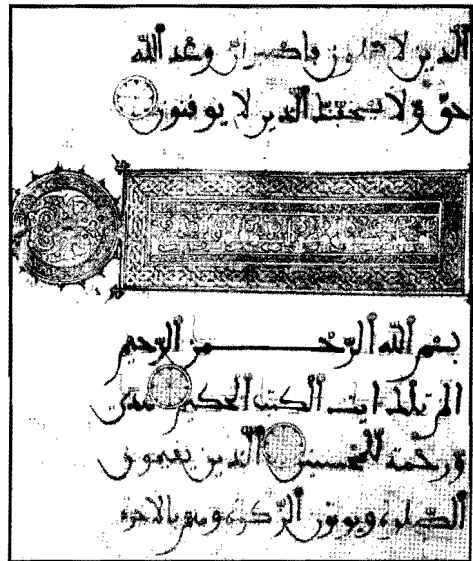 الذين لا يعلمون فاصبر ان وعد الله
حقّ ولا يستخفنّك الذين لا يوقنون
بسم الله الرّحمن الرّحيم
الم تلك ايت الكتب الحكيم هدى
ورحمة للمحسنين الذين يقيمون
الصّلوة ويوتون الزّكوة وهم بالاخرة